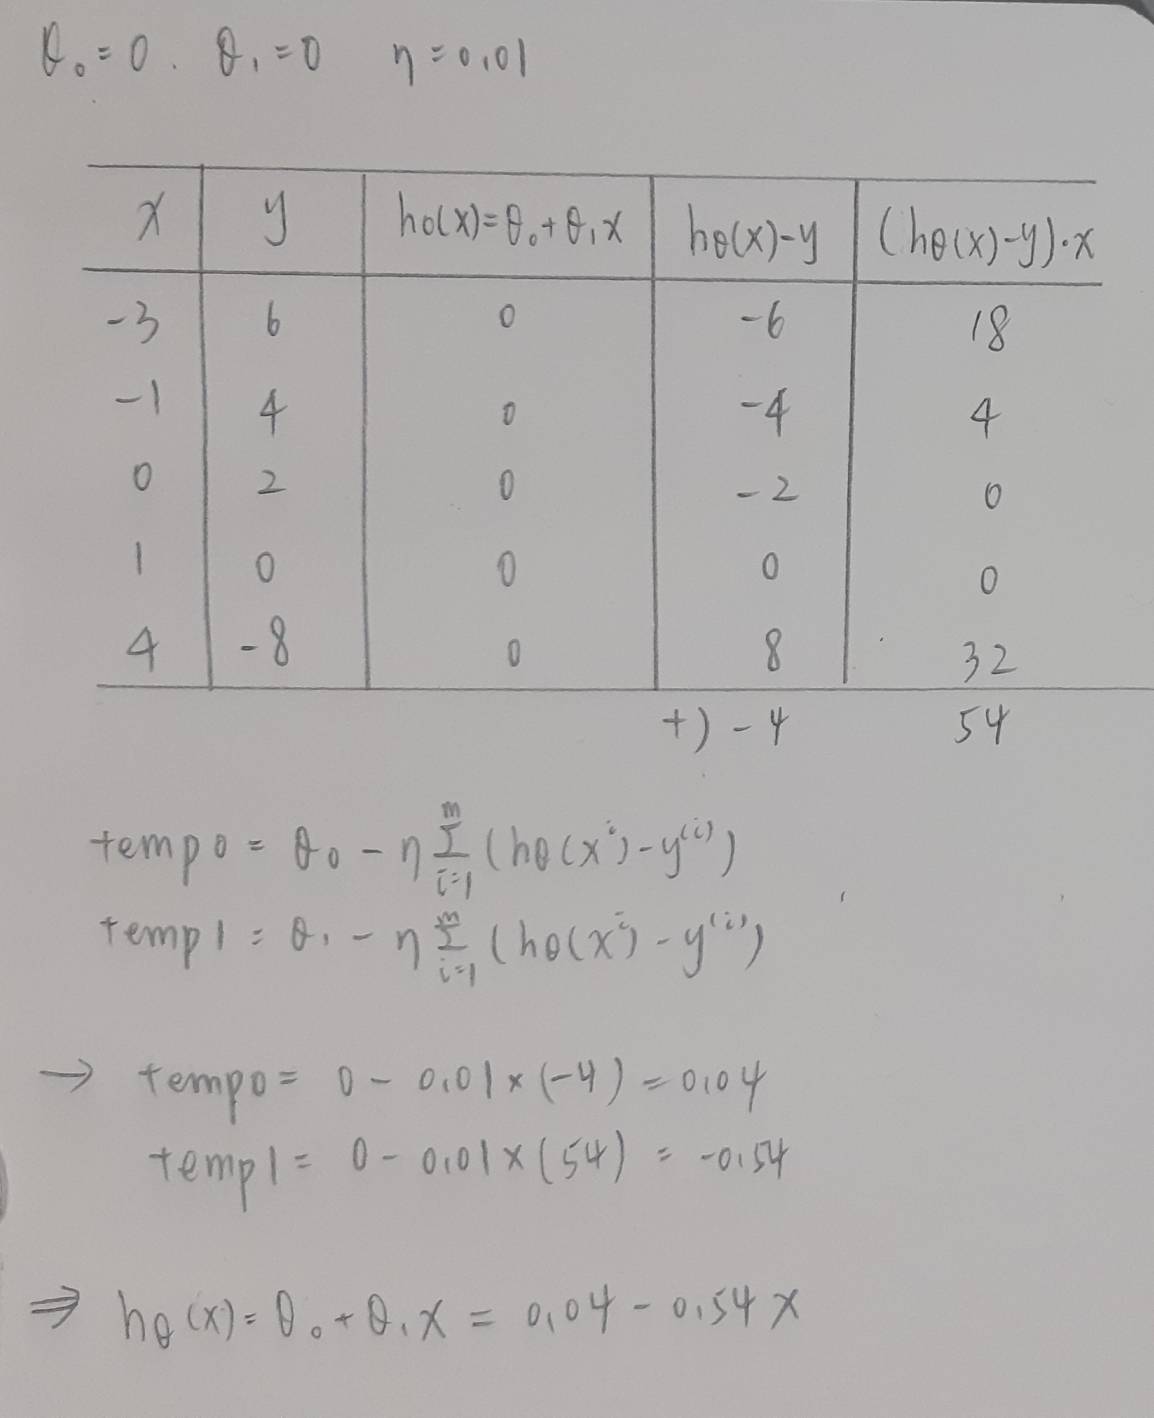 θ₀=0. θ₁=0 η=0.01
x y hθ(x)=θ₀+θ₁x hθ(x)-y (hθ(x)-y)·x
-3 6 0 -6 18
-1 4 0 -4 4
0 2 0 -2 0
1 0 0 0 0
4 -8 0 8 32
+) -4 54
temp0 = θ₀ - η Σᵢ₌₁ᵐ (hθ(xⁱ) - y⁽ⁱ⁾)
temp1 = θ₁ - η Σᵢ₌₁ᵐ (hθ(xⁱ) - y⁽ⁱ⁾)
→ temp0 = 0 - 0.01 × (-4) = 0.04
temp1 = 0 - 0.01 × (54) = -0.54
⇒ hθ(x) = θ₀ + θ₁x = 0.04 - 0.54x